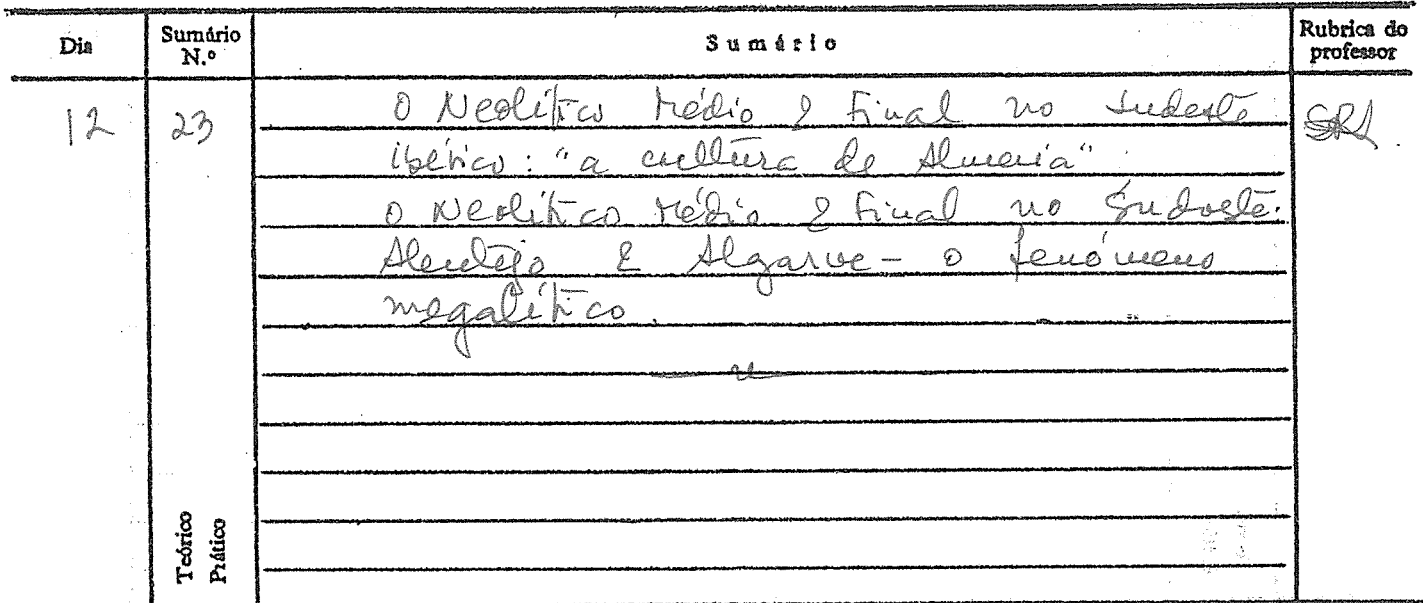 Dia Sumário N.º Sumário Rubrica do professor
12 23 O Neolítico Médio e Final no Sudeste
ibérico: "a cultura de Almeria".
O Neolítico Médio e Final no Sudoeste.
Alentejo e Algarve - o fenómeno
megalítico.
Teórico
Prático